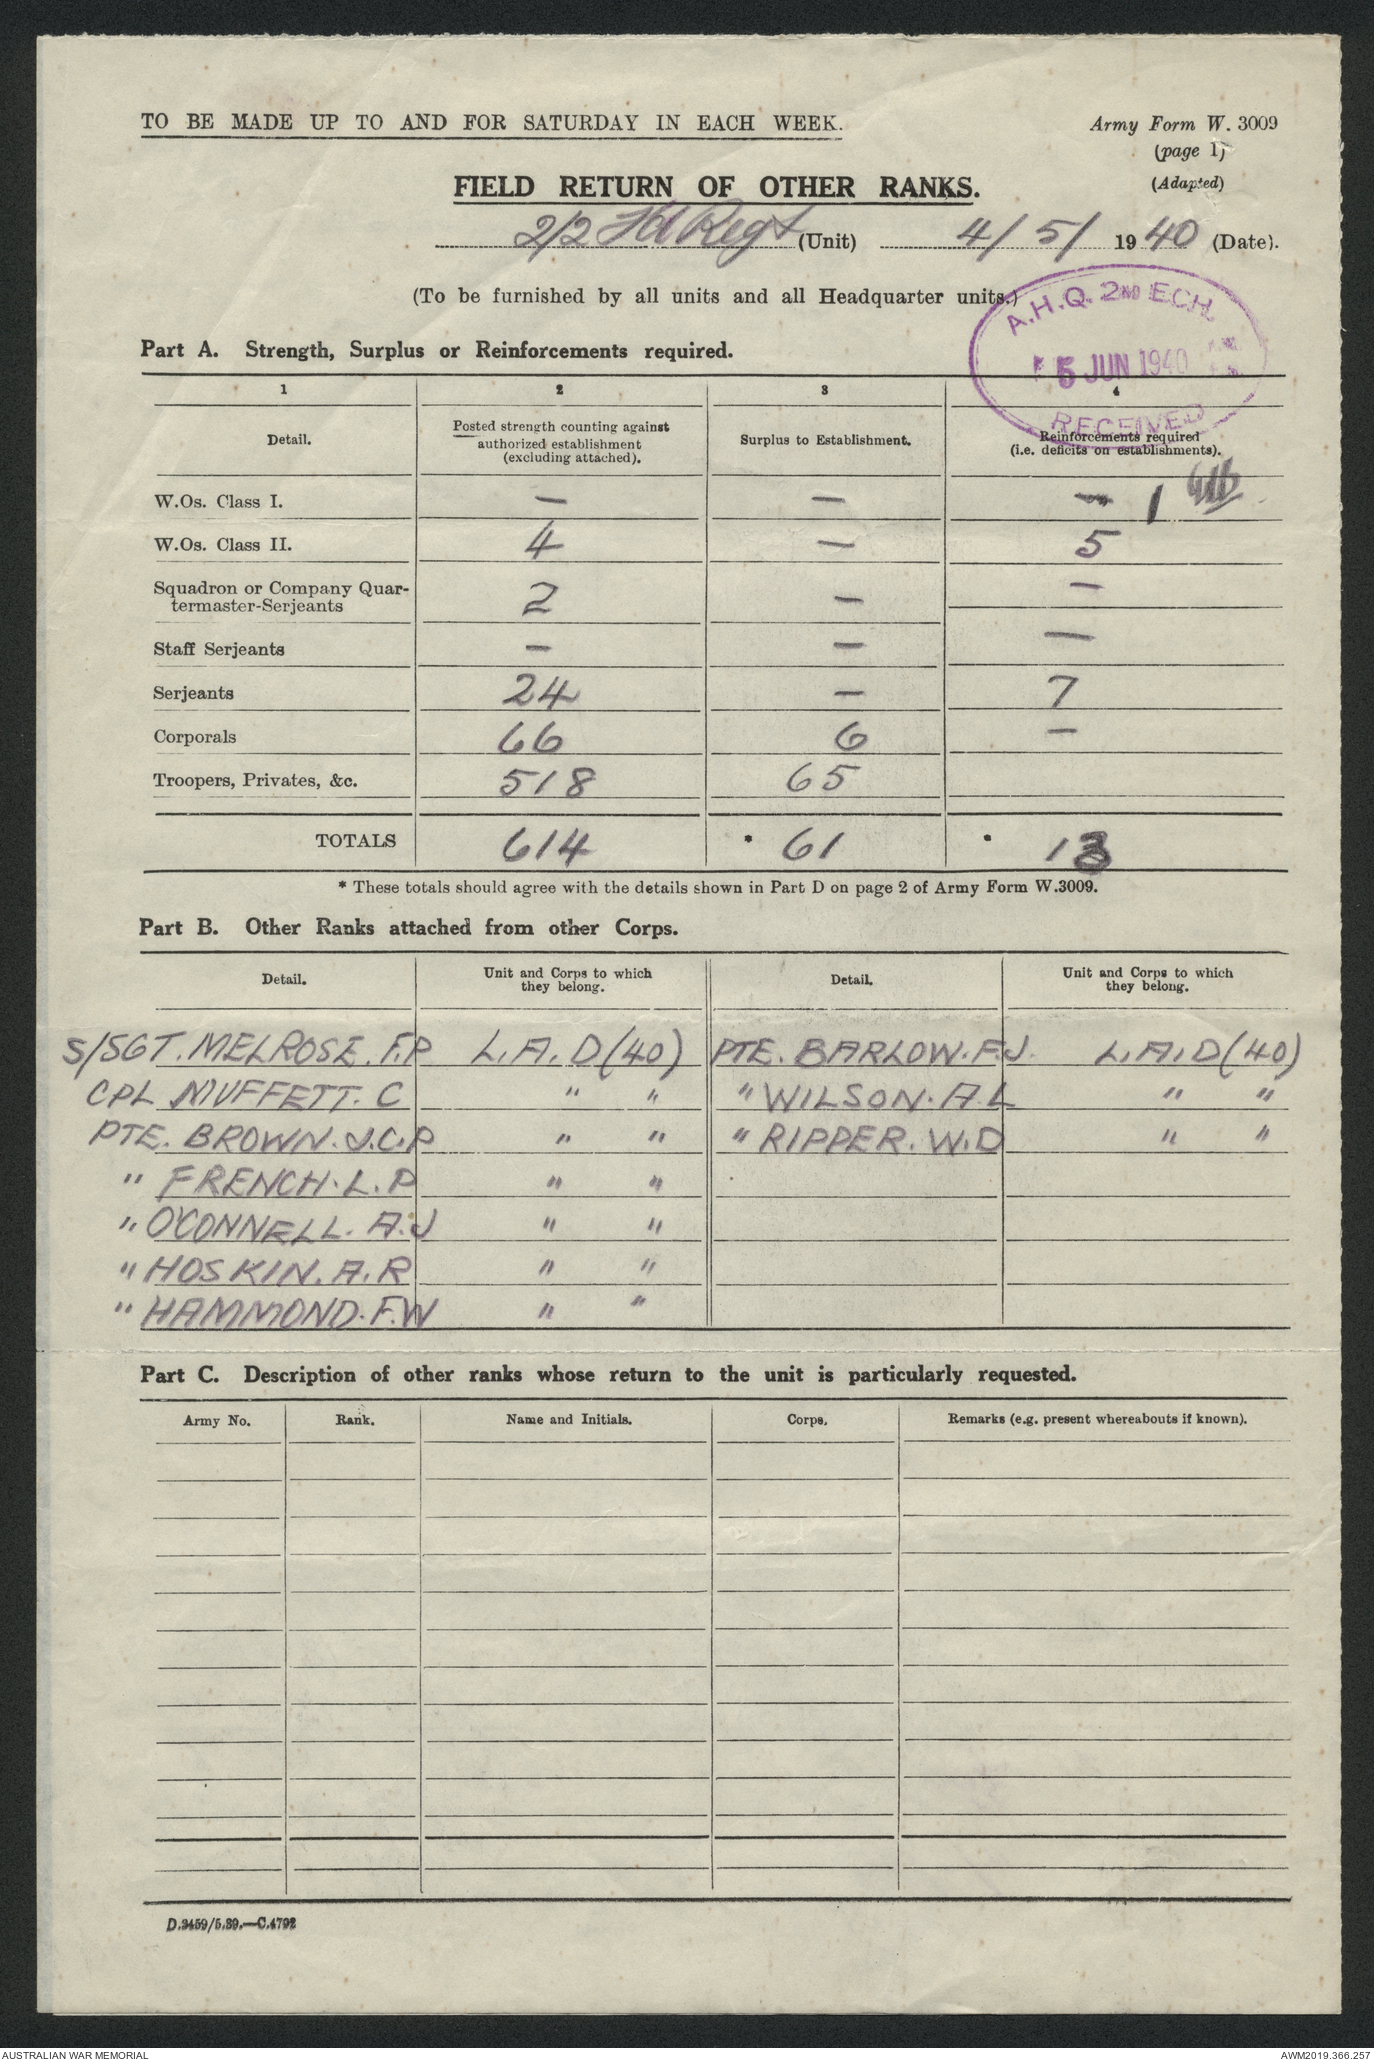 TO BE MADE UP TO AND FOR SATURDAY IN EACH WEEK.
Army Form W. 3009
(page 1)
(Adapted)
FIELD RETURN OF OTHER RANKS.
2/2 Fd Regt (Unit) 4/5/1940 (Date).
(To be furnished by all units and all Headquarter units.)
A.H.Q. 2ND ECH.
5 JUN 1940
RECEIVED
Part A. Strength, Surplus or Reinforcements required.
1 2 3 4
Detail. Posted strength counting against authorized establishment (excluding attached). Surplus to Establishment. Reinforcements required (i.e. deficits on establishments).
W.Os. Class I. — — — 1
W.Os. Class II. 4 — 5
Squadron or Company Quar-
termaster-Serjeants 2 — —
Staff Serjeants — — —
Serjeants 24 — 7
Corporals 66 6 —
Troopers, Privates, &c. 518 65
TOTALS 614 * 61 * 13
* These totals should agree with the details shown in Part D on page 2 of Army Form W.3009.
Part B. Other Ranks attached from other Corps.
Detail. Unit and Corps to which they belong. Detail. Unit and Corps to which they belong.
S/SGT. MELROSE. F.P L.A.D (40) PTE. BARLOW. F.J. L.A.D (40)
CPL MUFFETT. C " " " WILSON. A.L " "
PTE. BROWN. J.C.P " " " RIPPER. W.D " "
" FRENCH. L.P " "
" O'CONNELL. A.J " "
" HOSKIN. A.R " "
" HAMMOND. F.W " "
Part C. Description of other ranks whose return to the unit is particularly requested.
Army No. Rank. Name and Initials. Corps. Remarks (e.g. present whereabouts if known).
D.3459/5.39.—C.4792
AUSTRALIAN WAR MEMORIAL
AWM2019.366.257